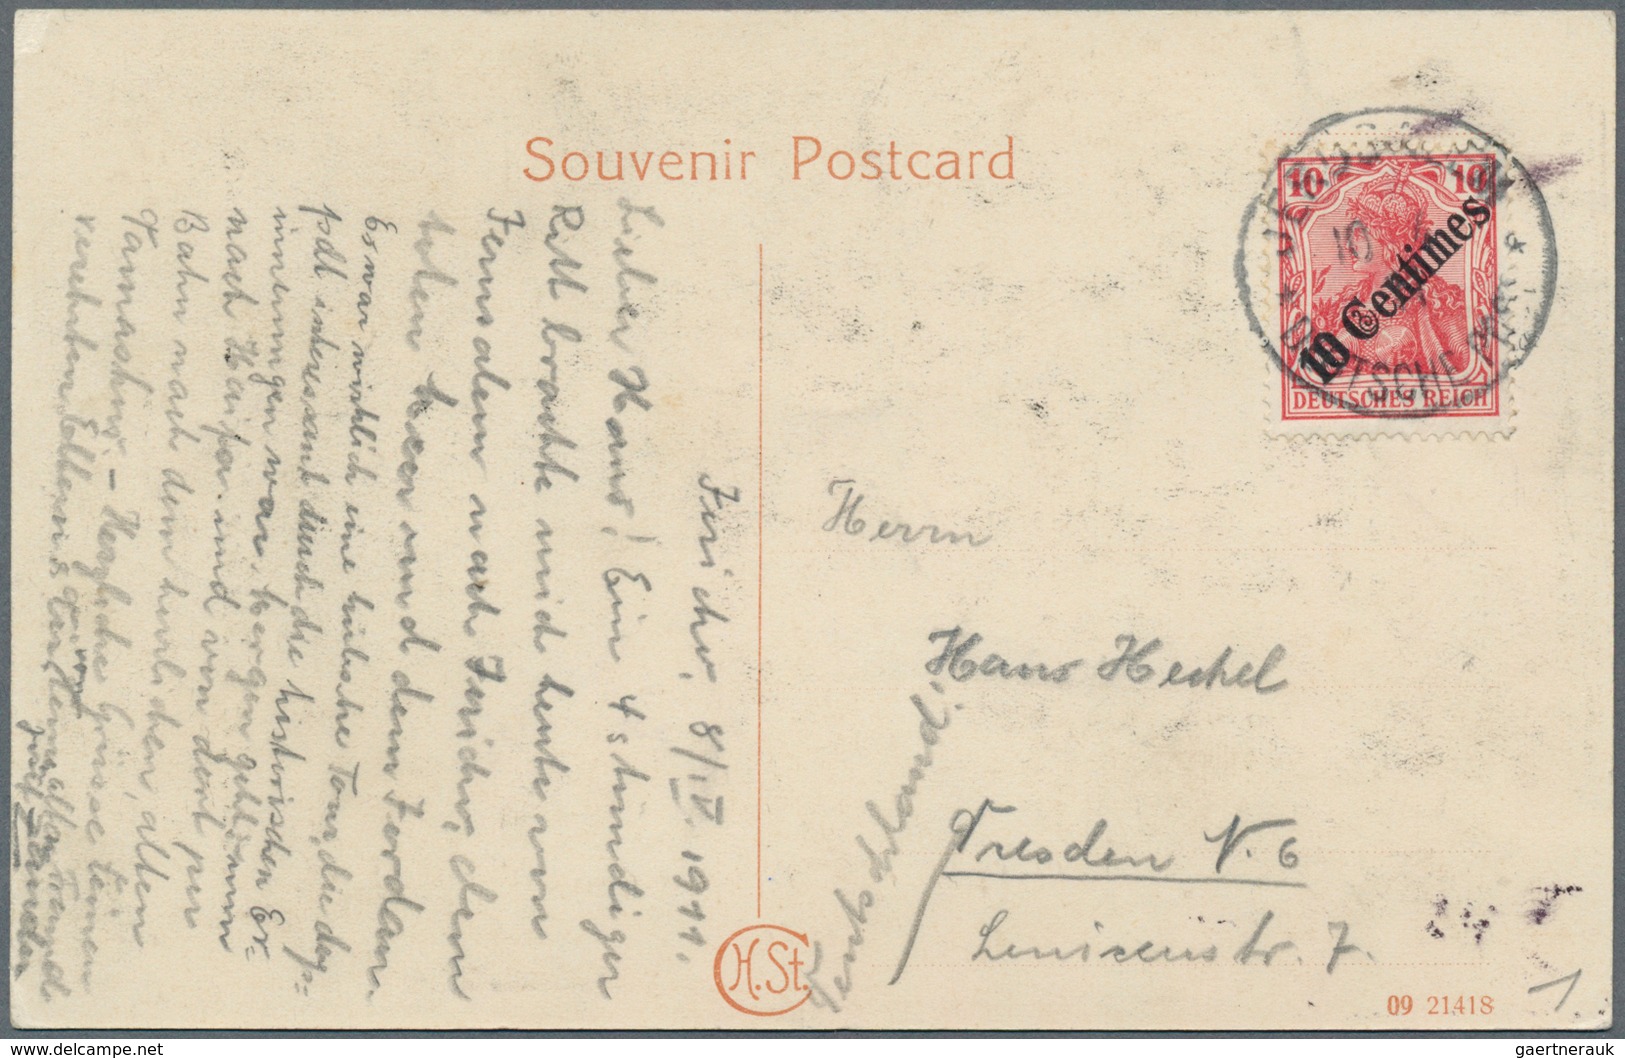 Souvenir Postcard
Jericho, 8/IV. 1911.
Lieber Hans! Ein 4stündiger
Ritt brachte mich heute von
Jerusalem nach Jericho, dem
toten Meer und dem Jordan.
Es war wirklich eine hübsche Tour, die dop=
pelt interessant durch die historischen Er=
innerungen war. Morgen geht's nun
nach Haifa und von dort per
Bahn nach dem herrlichen, alten
Damaskus. – Herzliche Grüsse Deinen
verehrten Eltern &
JERUSALEM
DEUTSCHE POST
10
10 10
10 Centimes
DEUTSCHES REICH
Herrn
Hans Heckel
Dresden N. 6
Luisenstr. 7.
Deutschland.
H.St.
09 21418
1.
gaertnerauk